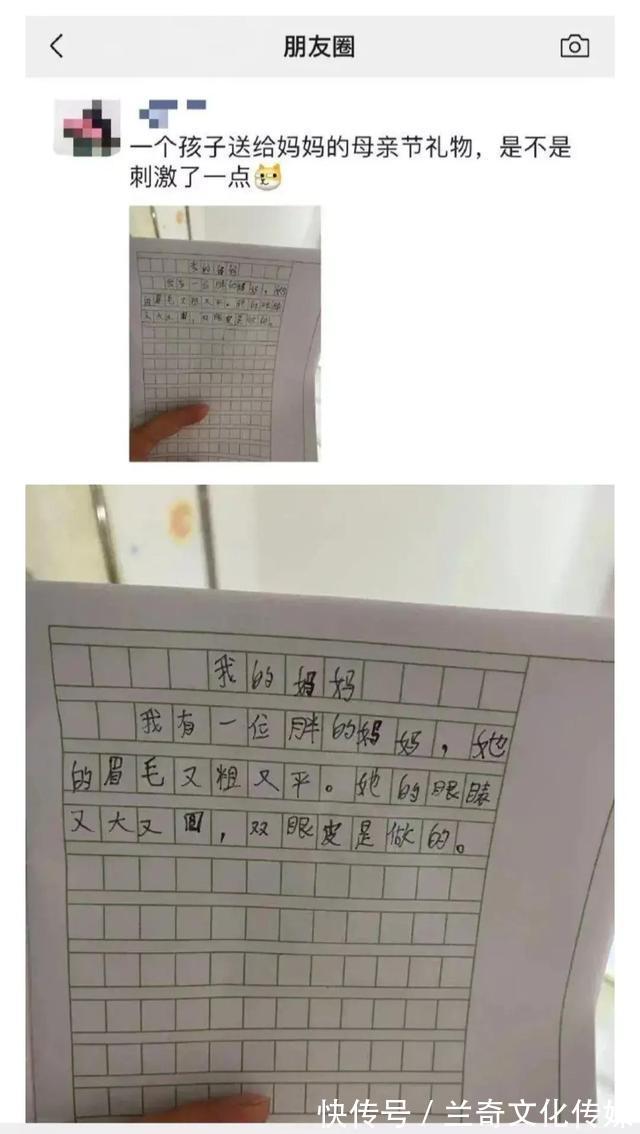 朋友圈
一个孩子送给妈妈的母亲节礼物，是不是
刺激了一点
我的妈妈
我有一位胖的妈妈，她
的眉毛又粗又平。她的眼睛
又大又圆，双眼皮是做的。
快传号／兰奇文化传媒